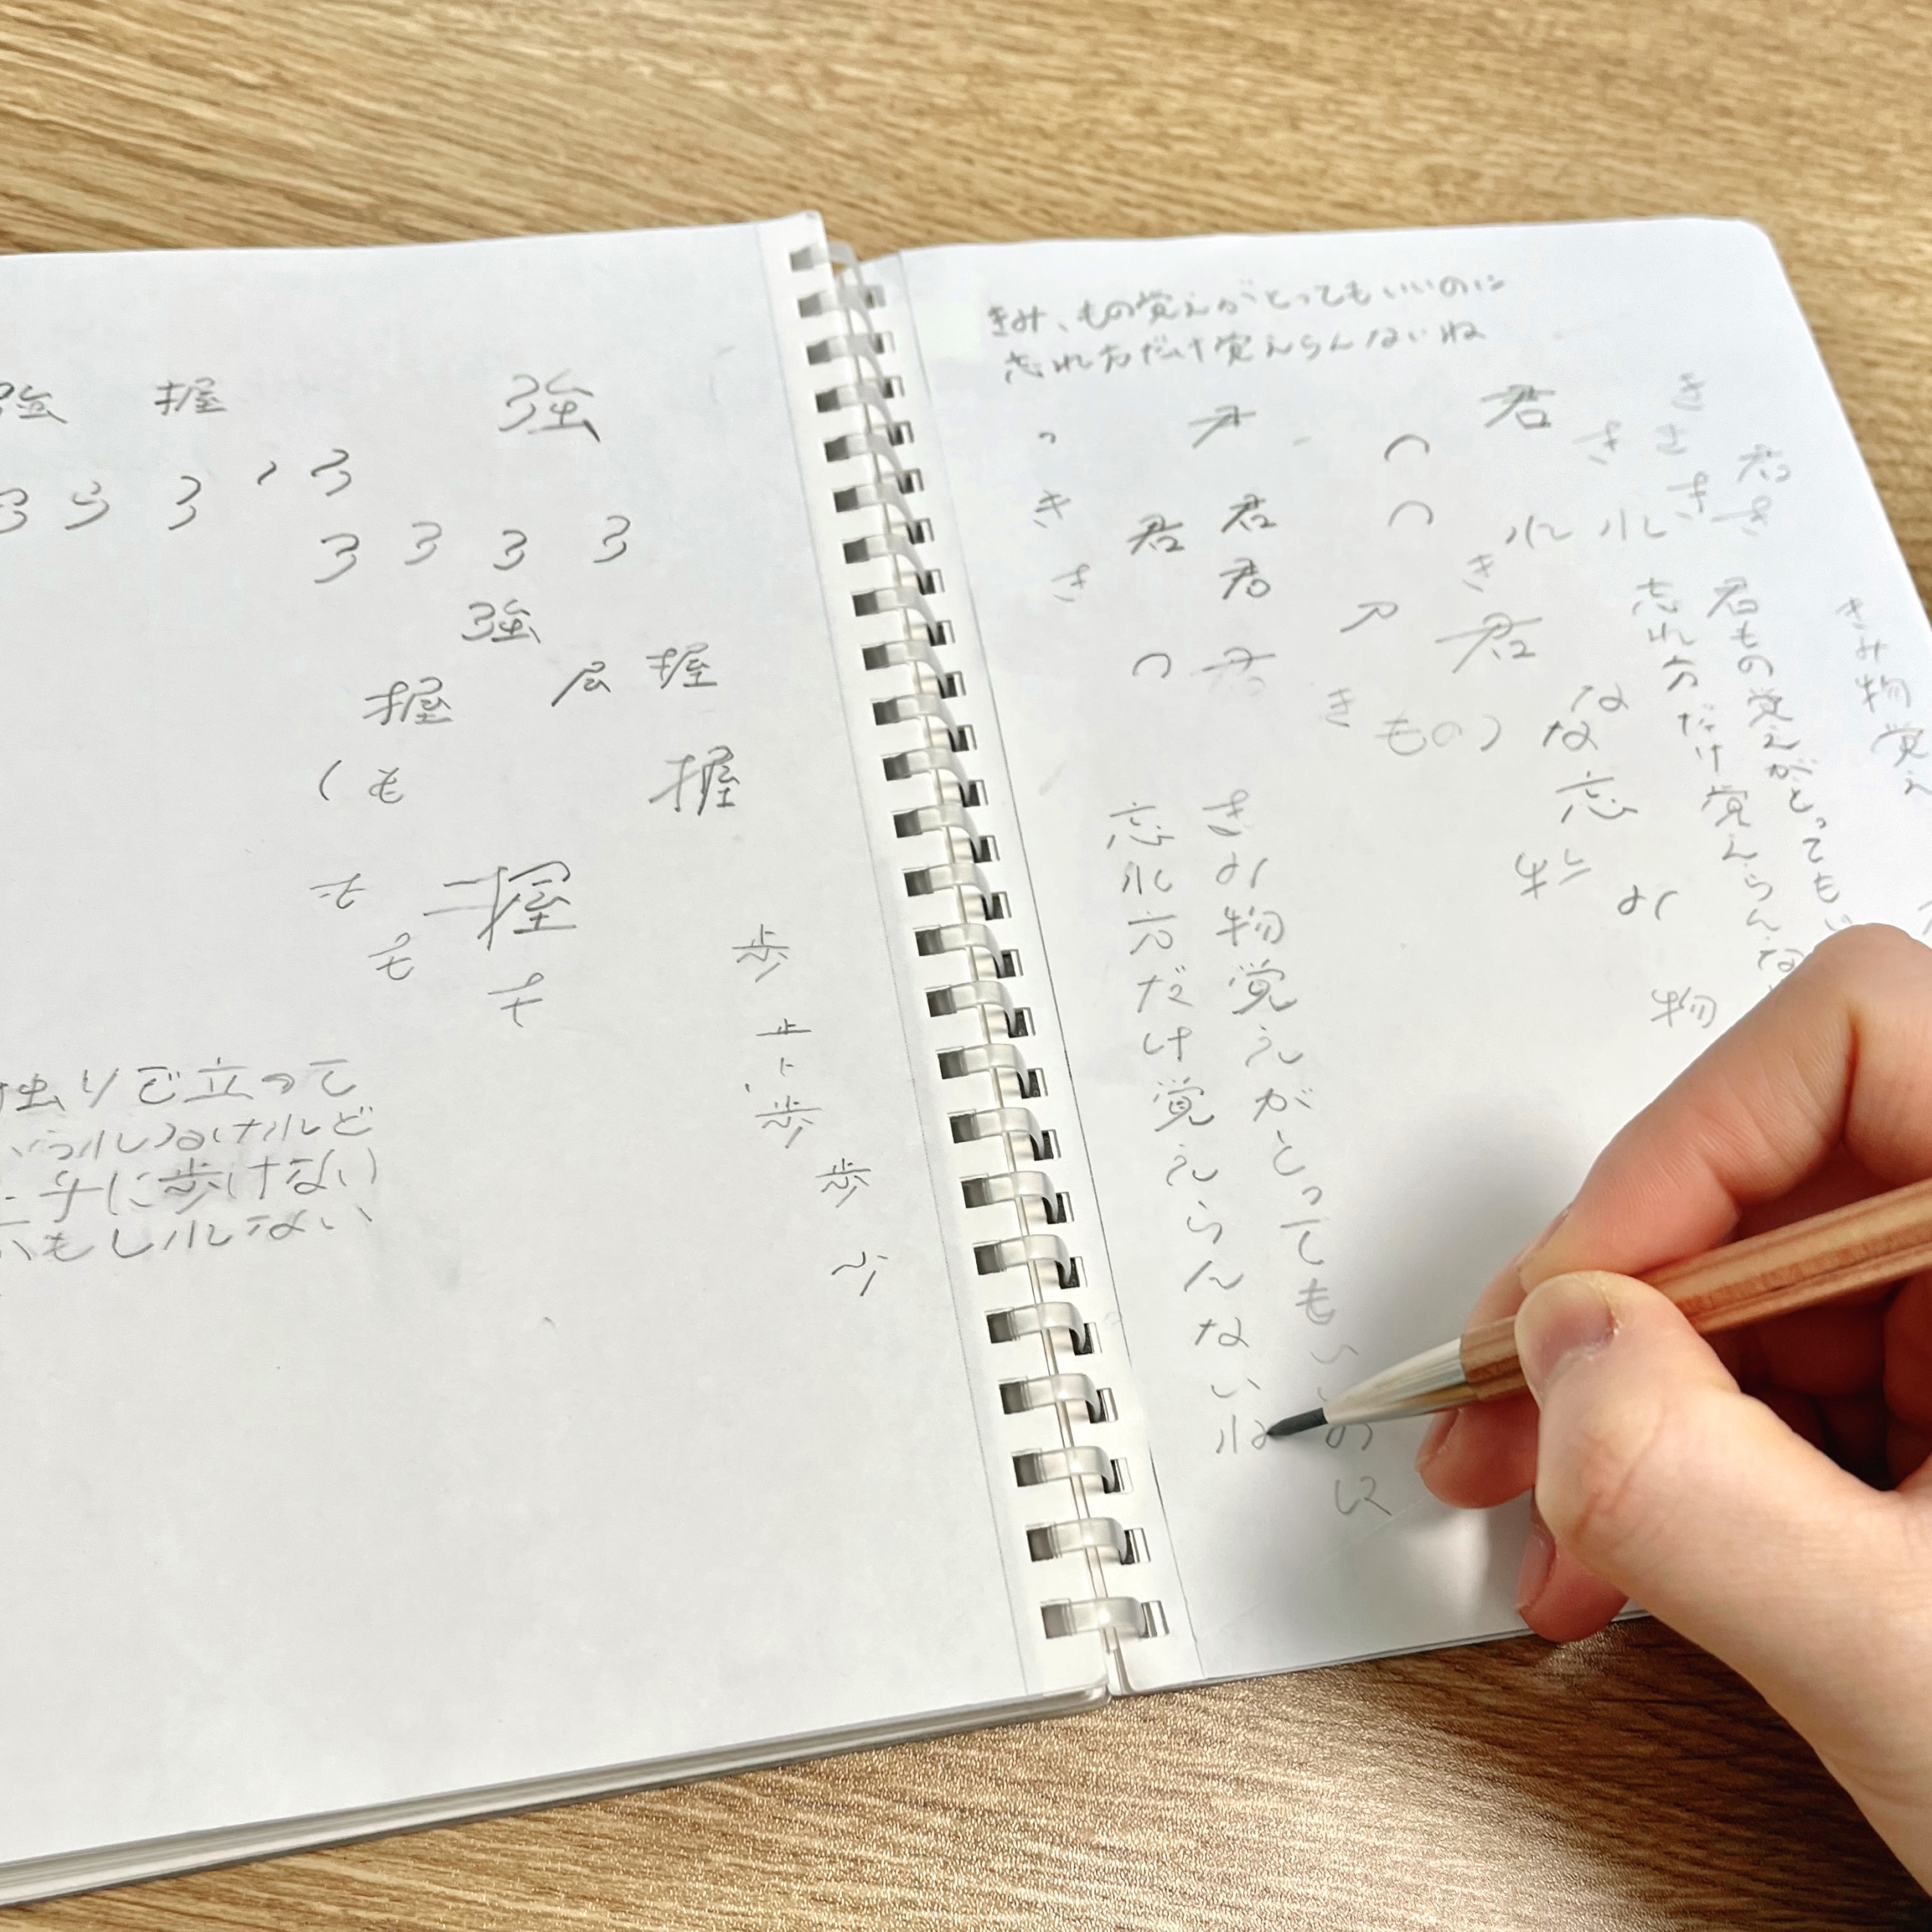 強 握 強
3 3 3 、 3
3 3 3 3
強
握 戸 握
( も 握
も 握
も
も
歩
止
歩
歩
りで立って
けれど
に歩けない
もしれない
きみ、もの覚えがとってもいいのに
忘れ方だけ覚えらんないね
君
き
き き
君
き 君 君
き き
れ れ
き 君 き
ア 君
き もの な
な
忘
み
物
きみ物覚え
君もの覚えがとってもい
忘れ方だけ覚えらんな
きみ物覚えがとってもいいのに
忘れ方だけ覚えらんないね